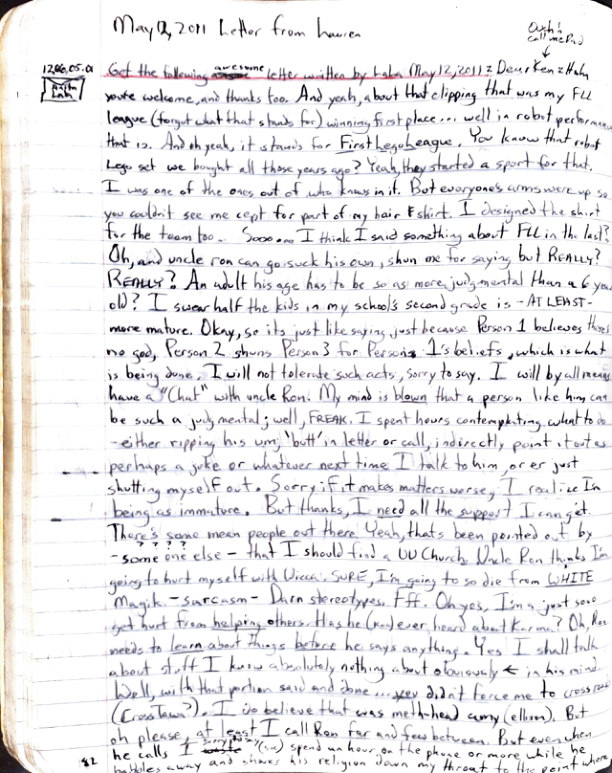 May 12, 2011 Letter from Lauren
Ouch!
call me Dad
1286.05.01
Get the following awesome letter written by Laha May 12, 2011: Dear Ken: Haha
you're welcome, and thanks too. And yeah, about that clipping that was my FLL
league (forgot what that stands for) winning first place... well in robot performance
that is. And oh yeah, it stands for First Lego League. You know that robot
Lego set we bought all those years ago? Yeah, they started a sport for that.
I was one of the ones out of who knows in it. But everyone's arms were up so
you couldn't see me cept for part of my hair & shirt. I designed the shirt
for the team too. Sooo... I think I said something about FLL in the last?
Oh, and uncle ron can go suck his own, shun me for saying but REALLY?
REALLY? An adult his age has to be so as more judgmental than a 6 year
old? I swear half the kids in my school's second grade is - AT LEAST -
more mature. Okay, so its just like saying, just because Person 1 believes there's
no god, Person 2 shuns Person 3 for Persons 1's beliefs, which is what
is being done. I will not tolerate such acts, sorry to say. I will by all means
have a "Chat" with uncle Ron. My mind is blown that a person like him can
be such a judgmental; well, FREAK. I spent hours contemplating what to do
- either ripping his um, 'butt' in letter or call, indirectly point it out as
perhaps a joke or whatever next time I talk to him, or er just
shutting myself out. Sorry if it makes matters worse, I realize Im
being as immature. But thanks, I need all the support I can get.
There's some mean people out there Yeah, thats been pointed out by
- some one else - that I should find a UU Church. Uncle Ron thinks I'm
going to hurt myself with Wicca. SURE, I'm going to so die from WHITE
Magik. - sarcasm - Darn stereotypes. Fff. Oh yes, I'm a just sooo
get hurt from helping others. Has he (Ron) ever heard about Karma? Oh, Ron
needs to learn about things before he says anything. Yes I shall talk
about stuff I know absolutely nothing about obviously ← in his mind.
Well, with that portion said and done... didn't force me to cross road
(CrossTown?), I do believe that was meth-head (ellison). But
oh please, at least I call Ron far and few between. But even when
he calls I (in) spend an hour on the phone or more while he
babbles away and shoves his religion down my throat to the point where
82